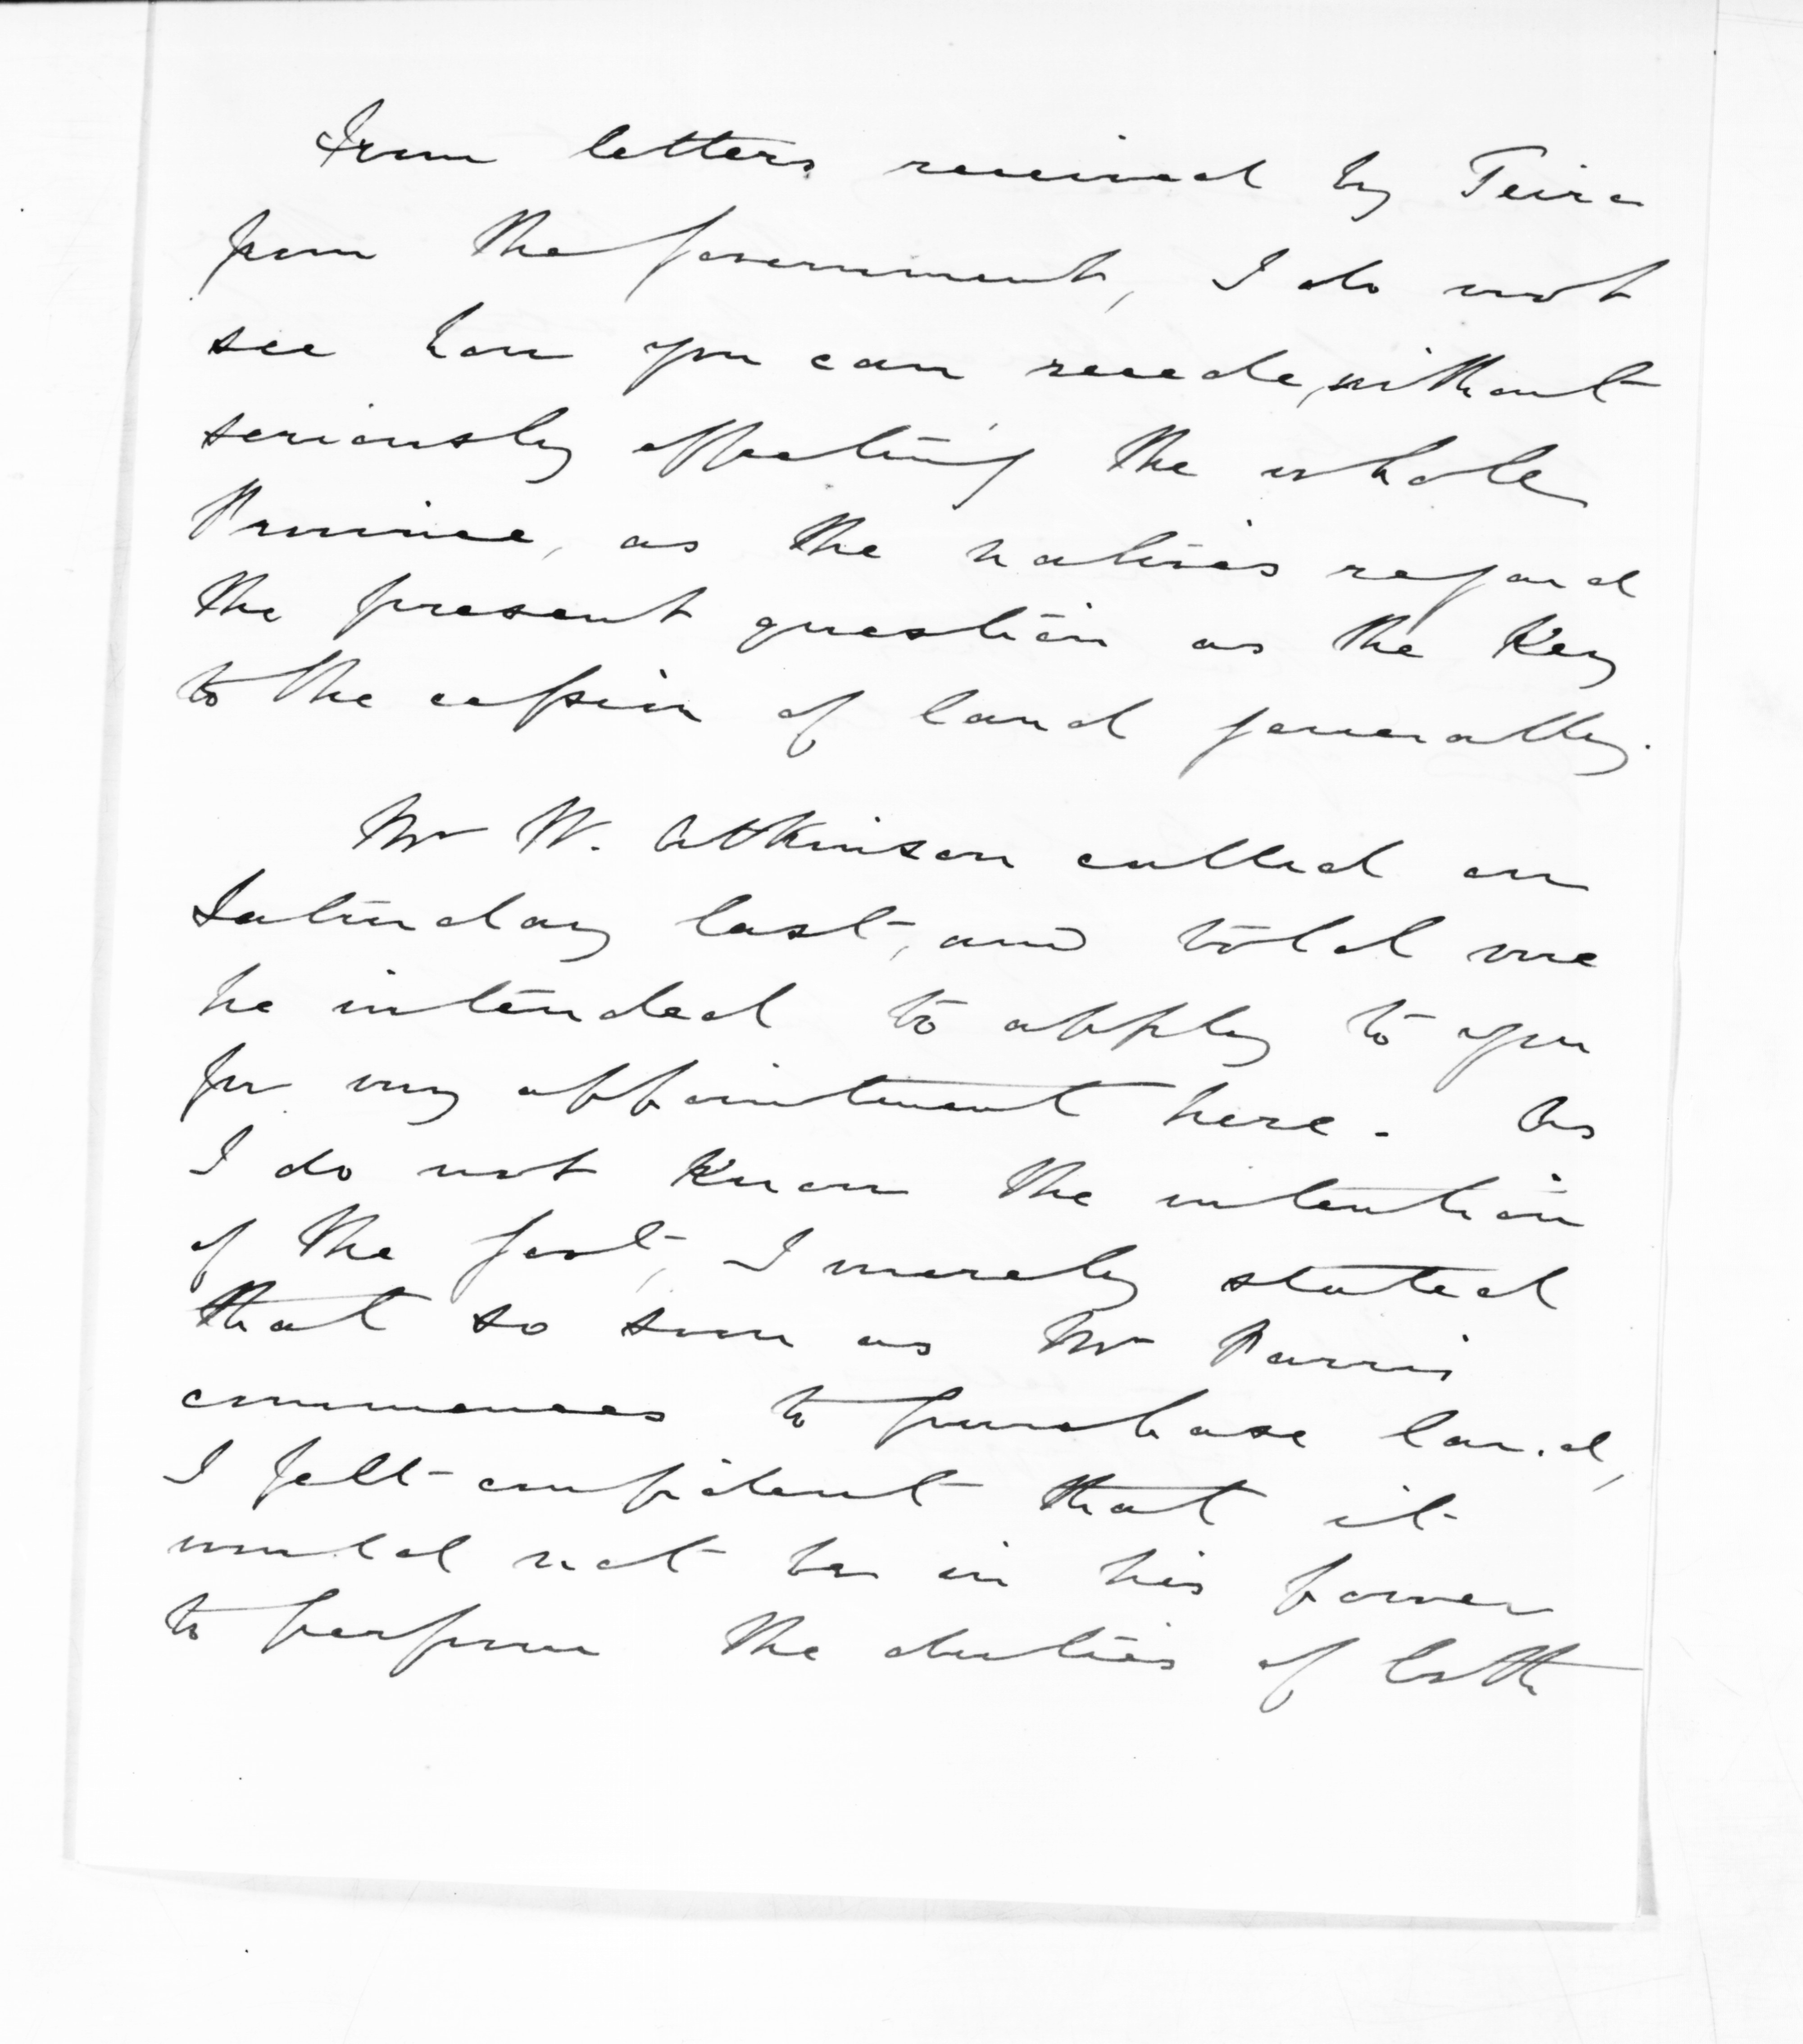 From letters received by Teira
from the Government, I do not
see how you can recede, without
seriously affecting the whole
Province, as the natives regard
the present question as the Key
to the cession of land generally.
Mr W. Atkinson called on
Saturday last, and told me
he intended to apply to you
for my appointment here. As
I do not know the intention
of the Govt, I merely stated
that so soon as Mr Parris
commences to purchase land,
I felt confident that it
would not be in his power
to perform the duties of both